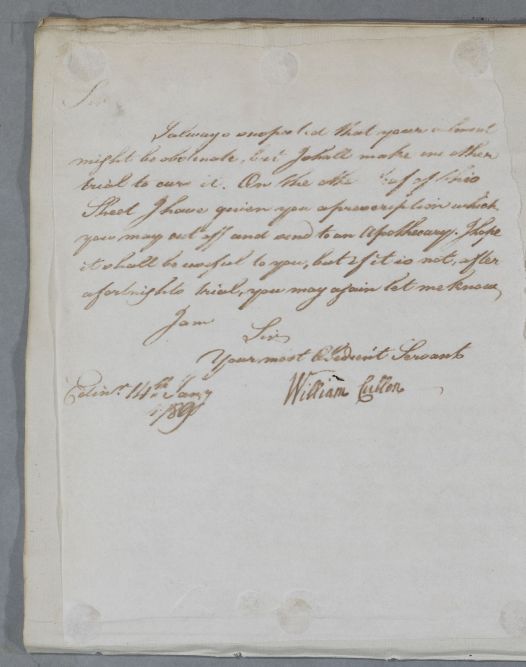 Sir
I always suspected that your ailment
might be obstinate, but I shall make another
trial to cure it. On the othe leaf of this
Sheet I have given you a prescription which
you may cut off and send to an Apothecary. I hope
it shall be useful to you, but if it is not, after
a fortnights trial, you may again let me know,
I am
Sir
Your most Obedient Servant
Edinr. 14th Jany
William Cullen